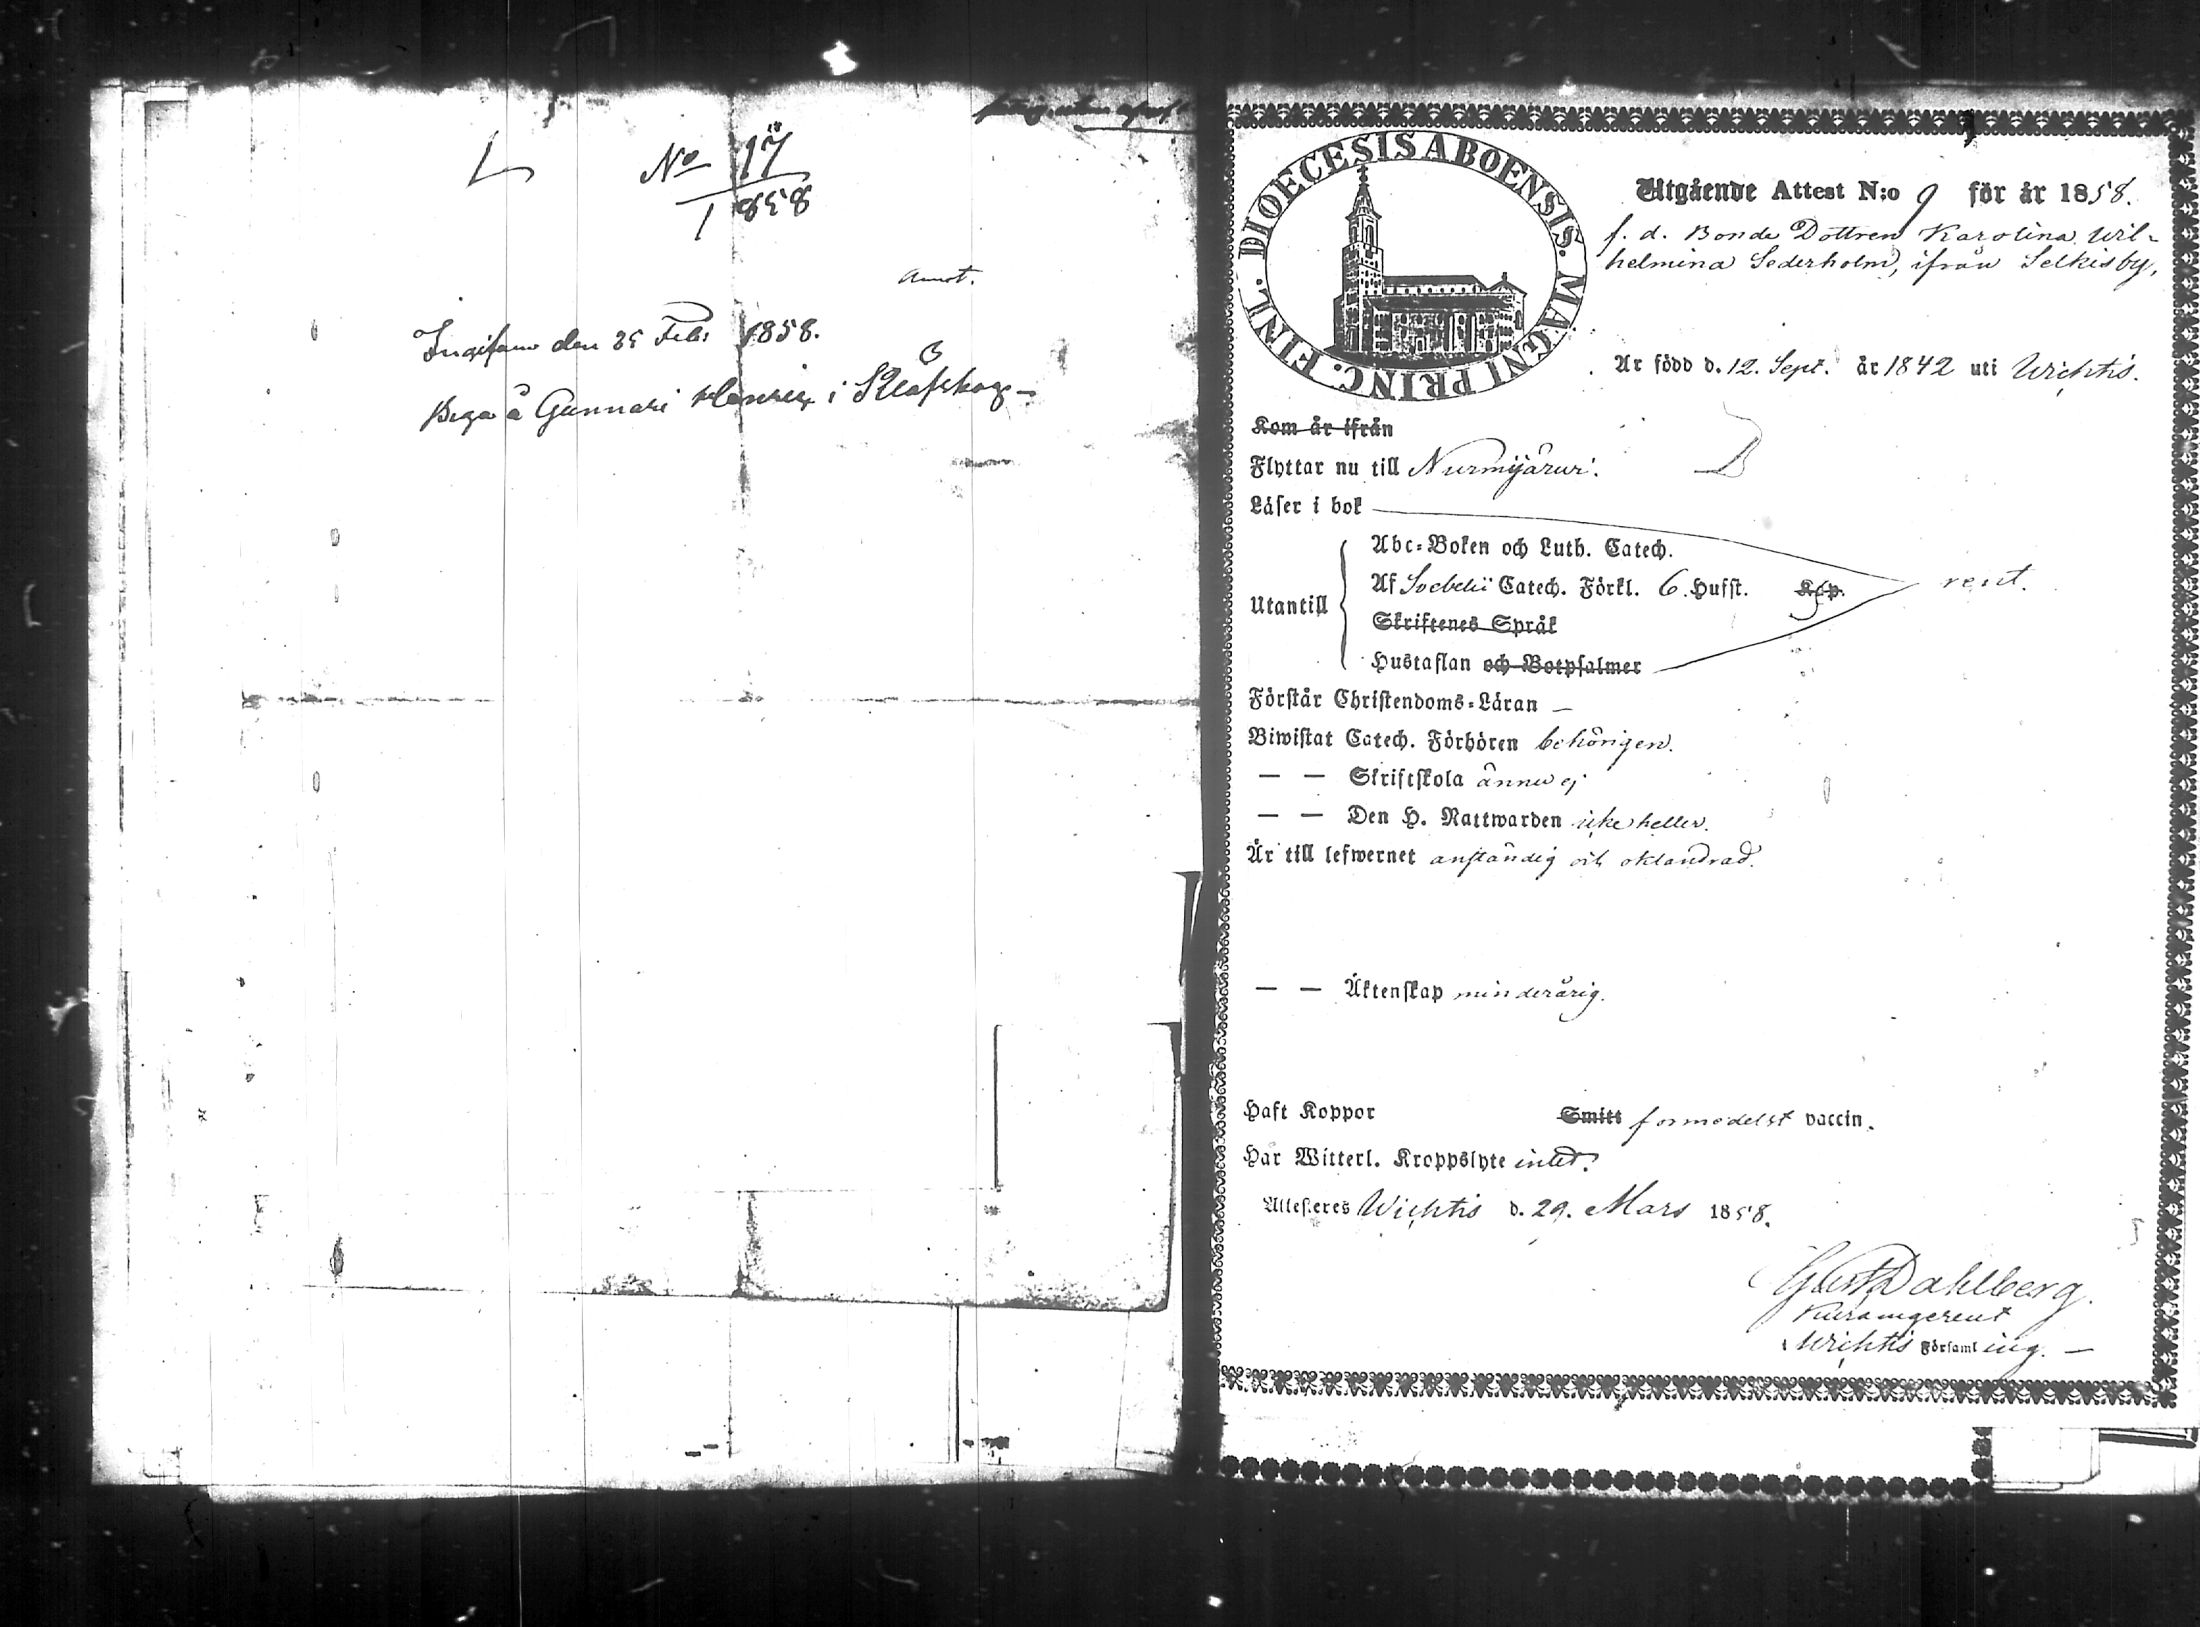 No 17
1858
Annot.
den 25 Feb: 1858.
Piga å Gunnari Henrix i
DIOECESIS ABOENSIS. MAGNI PRINC. FINL.
Utgående Attest N:o 9 för år 1858.
f. d. Bonde Dottren Karolina Wil-
helmina Sederholm, ifrån Selkisby,
Är född d. 12. Sept. år 1842 uti Wichtis.
Kom år ifrån
Flyttar nu till Nurmijärwi.
Läser i bok
Abc-Boken och Luth. Catech.
Utantill
Af Svebelii Catech. Förkl. 6. Hufst. Kap. rent.
Skriftenes Språk
Hustaflan och Botpsalmer
Förstår Christendoms-Läran —
Biwistat Catech. Förhören behörigen.
— — Skriftskola ännu ej
— — Den H. Nattwarden icke heller.
Är till lefwernet anständig och oklandrad.
— — Äktenskap minderårig.
Haft Koppor Smitt formedelst vaccin.
Har Witterl. Kroppslyte intet.
Attesteres Wichtis d. 29. Mars 1858.
Dahlberg.
Wichtis Församling. —